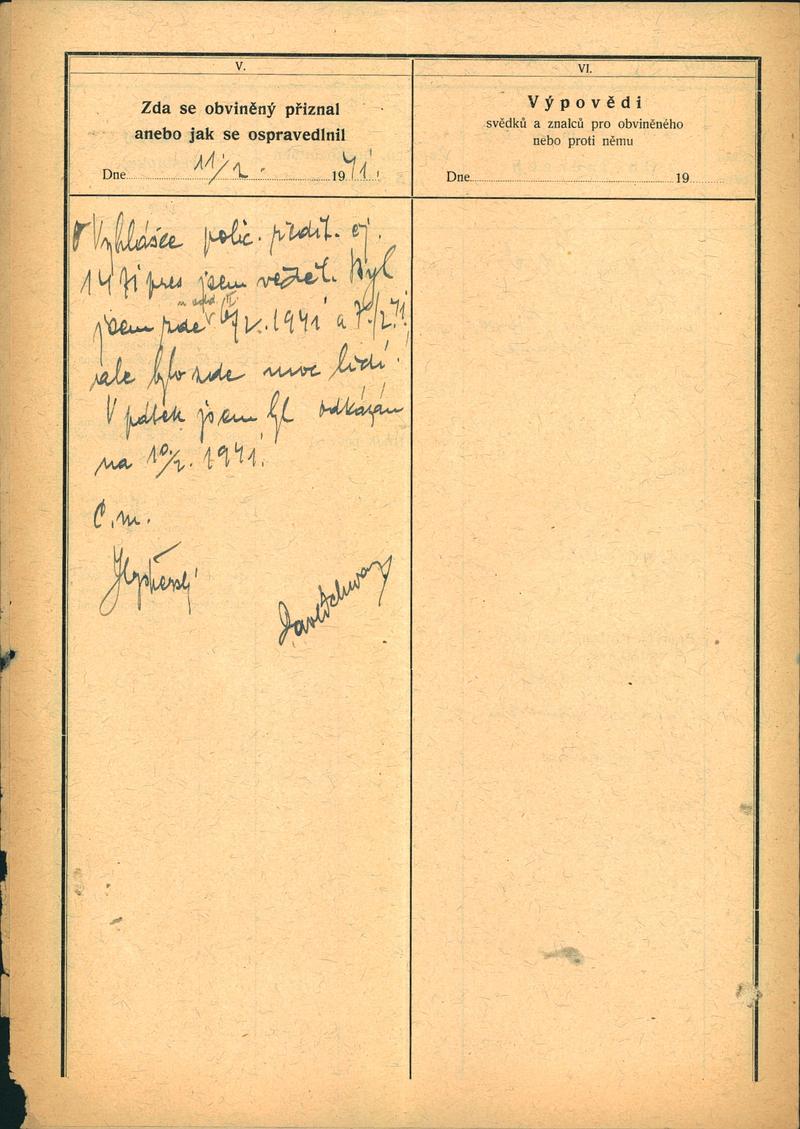 V.
Zda se obviněný přiznal
anebo jak se ospravedlnil
Dne 11/2. 1941.
O Vyhlášce polic. ředit. čj.
1471 pres jsem věděl. Byl
jsem zde 6/2. 1941 a 7./2. 41.
ale bylo zde moc lidí.
V pátek jsem byl odkázán
na 10./2. 1941.
Č. m.
VI.
Výpovědi
svědků a znalců pro obviněného
nebo proti němu
Dne 19